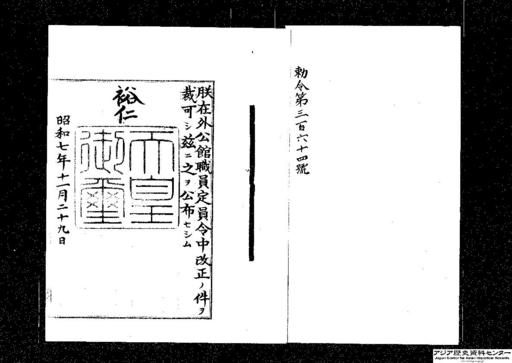 勅令第三百六十四號
朕在外公館職員定員令中改正ノ件ヲ
裁可シ茲ニ之ヲ公布セシム
裕仁
天皇
御璽
昭和七年十一月二十九日
アジア歴史資料センター
Japan Center for Asian Historical Records